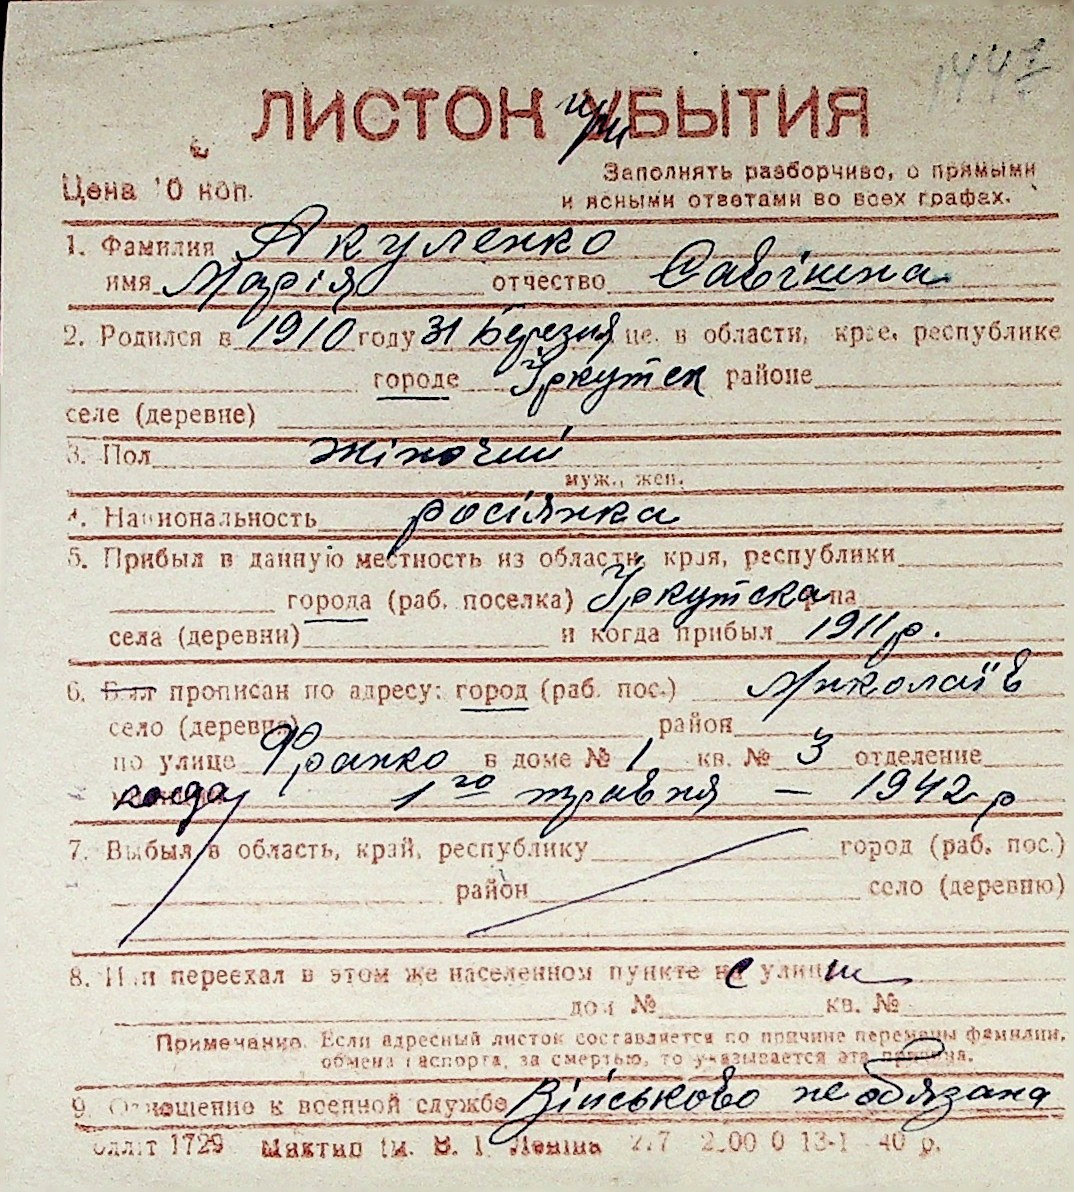 1447
ЛИСТОК при УБЫТИЯ
Цена 10 коп.
Заполнять разборчиво, с прямыми
и ясными ответами во всех графах.
1. Фамилия Якуленко
имя Марія отчество Савічна
2. Родился в 1910 году 31 Березня це. в области, крае, республике
городе Іркутск районе
селе (деревне)
3. Пол жіночий
муж., жен.
4. Национальность росіянка
5. Прибыл в данную местность из области, края, республики
города (раб. поселка) Іркутска р-на
села (деревни) и когда прибыл 1911 р.
6. Был прописан по адресу: город (раб. пос.) Миколаїв
село (деревня) район
по улице Франко в доме № 1 кв. № 3 отделение
когда 1го травня – 1942 р
7. Выбыл в область, край, республику город (раб. пос.)
район село (деревню)
8. Или переехал в этом же населенном пункте с улицы
дом № кв. №
Примечание. Если адресный листок составляется по причине перемены фамилии,
обмена паспорта, за смертью, то указывается эта причина.
9. Отношение к военной службе Військово не обязана
Оллiт 1729 ім. В. І. Леніна 13-1 40 р.